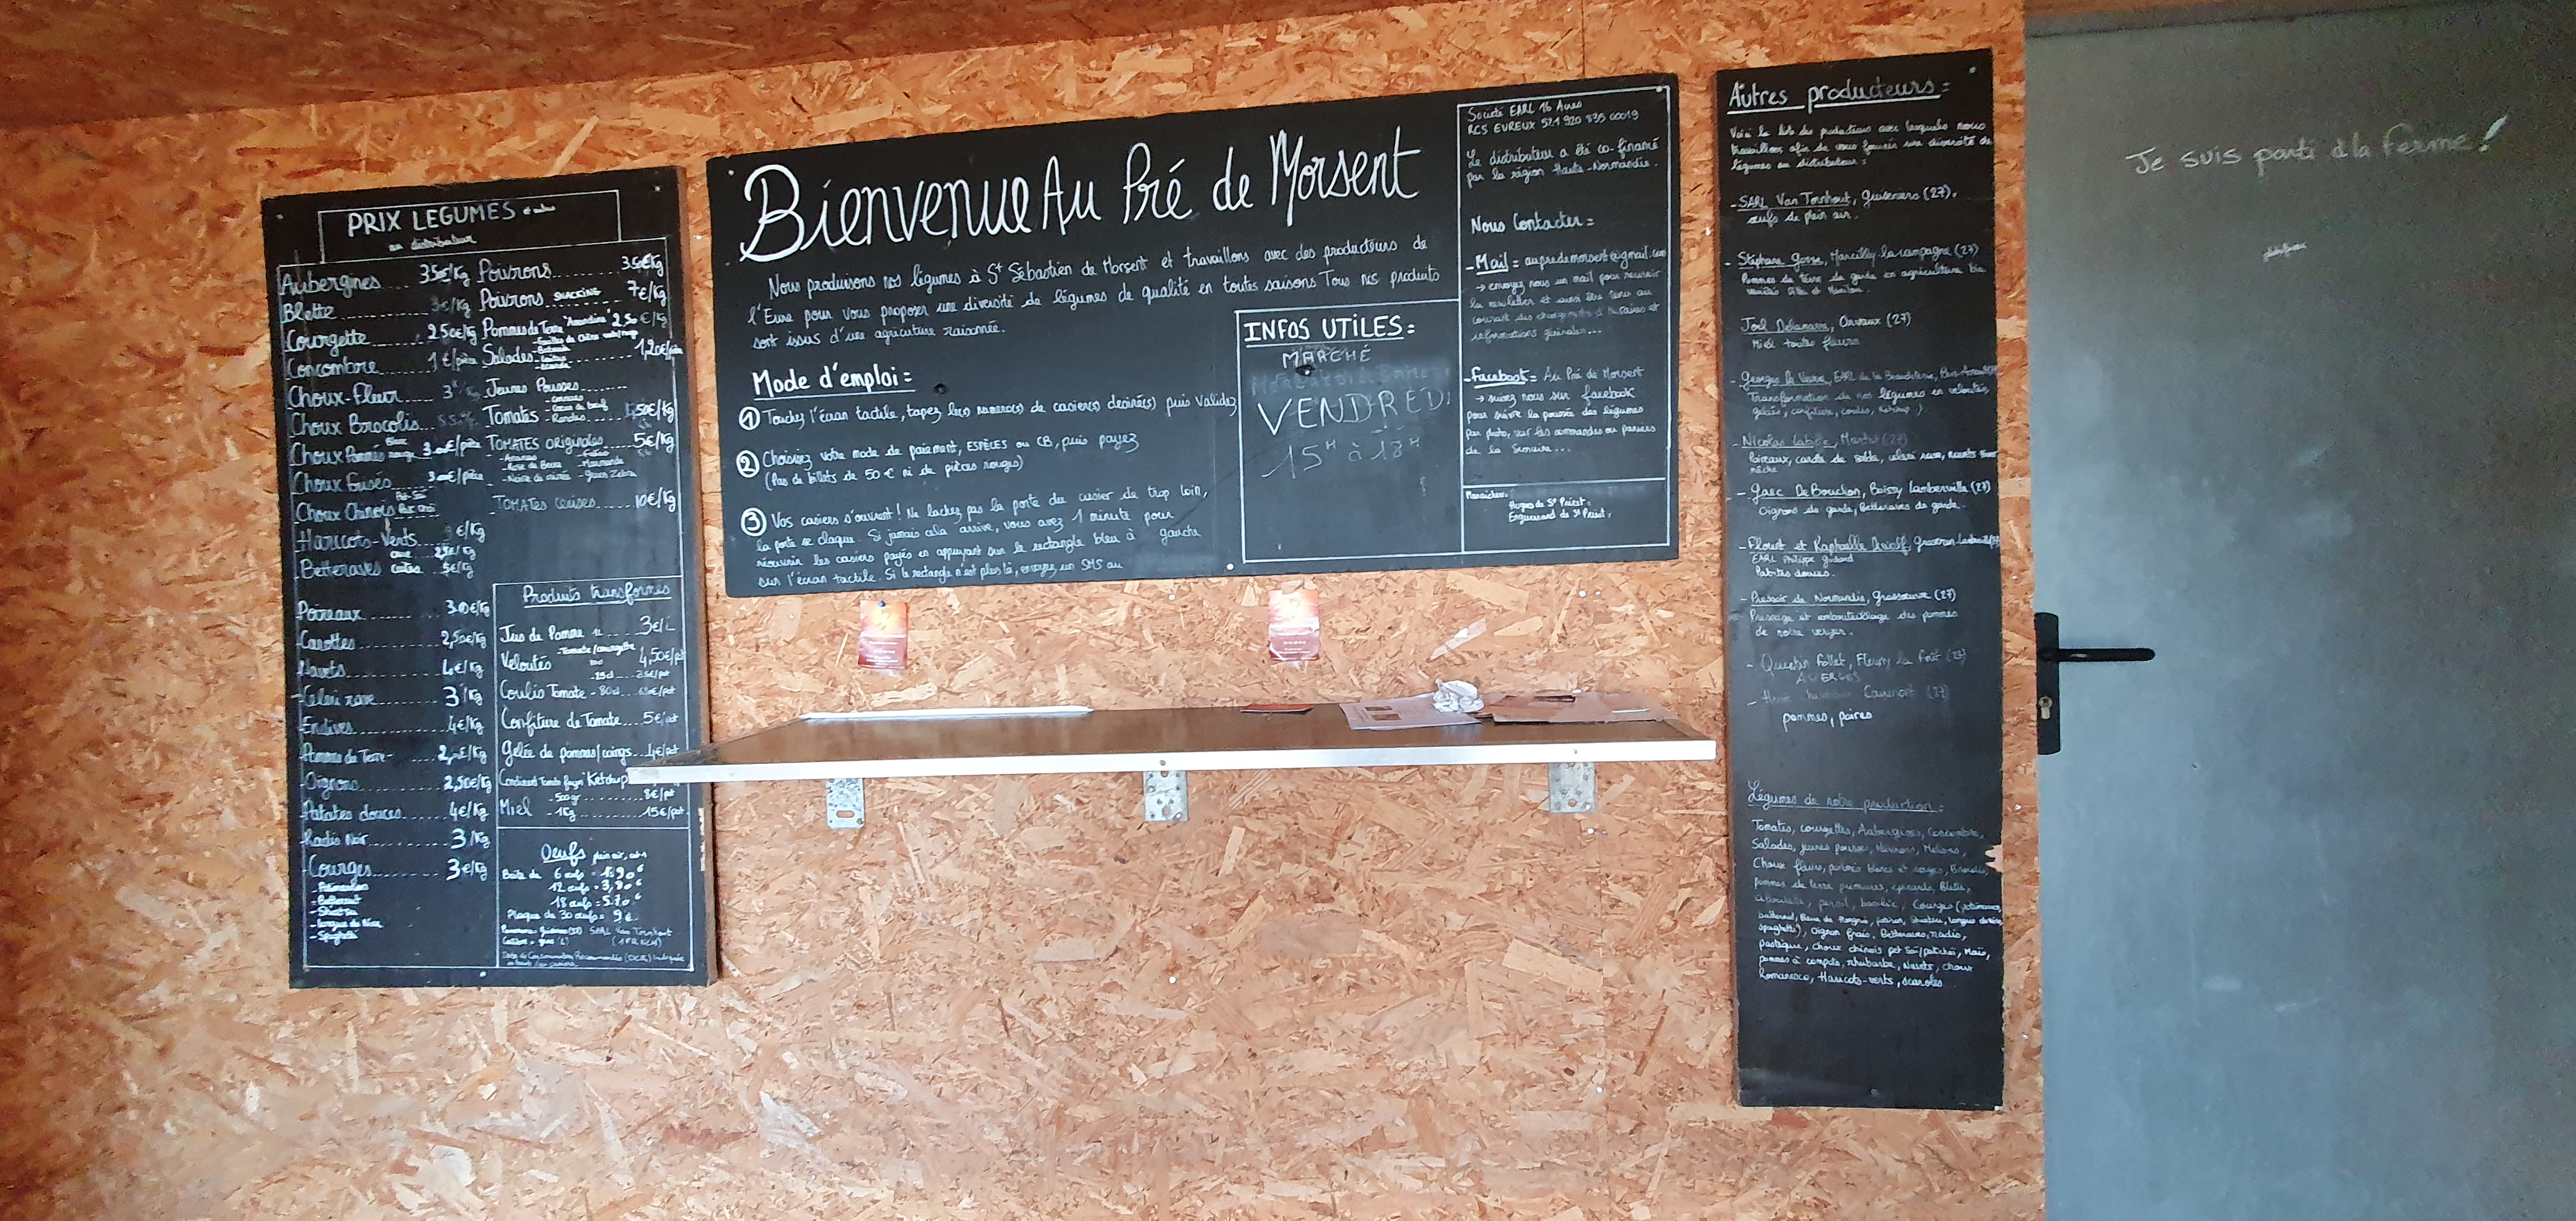 PRIX LEGUMES
au distributeur
Aubergines 3.50€/Kg
Blette 3€/Kg
Courgette 2.50€/Kg
Concombre 1€/pièce
Choux-Fleur 3
Choux Brocolis
Choux Pommés Blanc rouge 3.00€/pièce
Choux Frisés 3.00€/pièce
Choux Chinois Pet-Saï Pak choï
Haricots-Verts €/Kg
Betteraves crue €/Kg
cuites 5€/Kg
Poireaux 3.00€/Kg
Carottes 2,50€/Kg
Navets 4€/Kg
Céleri rave 3/Kg
Endives 4€/Kg
Pomme de Terre
Oignons 2,50€/Kg
Patates douces 4€/Kg
Radis Noir 3/Kg
Courges 3€/Kg
- Potimarron
- Butternut
- Shiatsu
- longue de Nice
- Spaghetti
Poivrons 3.50€/Kg
Poivrons SNACKING 7€/Kg
Pommes de Terre "Amandine" 2,50€/Kg
Salades 1,20€/pièce
- Feuilles de Chêne
- Batavia
- laitue
Jeunes Pousses
Tomates 50€/Kg
- Coeur de boeuf
- Rondes
TOMATES originales 5€/Kg
- Ananas
- Rose de Berne - Marmande
- Noire de crimée - green Zebra
TOMATES cerises 10€/Kg
Produits transformés
Jus de Pomme 1L 3€/L
Veloutés - Tomate/courgette 4,50€/pot
Coulis Tomate - 80cl
Confiture de Tomate 5€/pot
Gelée de pommes/coings 4€/pot
Condiment Tomate façon "Ketchup
Miel - 500gr 8€/pot
- 1Kg 15€/pot
Oeufs plein air
Boîte de 6 oeufs = 1.90€
12 oeufs = 3,80€
18 oeufs = 5.70€
Plaque de 30 oeufs = 9€
SARL Van Tornhout
Bienvenue Au Pré de Morsent
Nous produisons nos légumes à St Sébastien de Morsent et travaillons avec des producteurs de
l'Eure pour vous proposer une diversité de légumes de qualité en toutes saisons Tous nos produits
sont issus d'une agriculture raisonnée.
Mode d'emploi :
1 Touchez l'écran tactile, tapez le(s) numéro(s) de casier(s) désiré(s) puis Validez
2 Choisissez votre mode de paiement, ESPÈCES ou CB, puis payez
(Pas de billets de 50 € ni de pièces rouges)
3 Vos casiers s'ouvrent ! Ne lachez pas la porte du casier de trop loin,
la porte se claque. Si jamais cela arrive, vous avez 1 minute pour
réouvrir les casiers payés en appuyant sur le rectangle bleu à gauche
sur l'écran tactile. Si le rectangle n'est plus là, envoyez un SMS au
INFOS UTILES :
MARCHÉ
VENDREDI
15H à 18H
Société EARL 16 Acres
RCS EVREUX 521 920 835 00019
Le distributeur a été co-financé
par la région Haute-Normandie.
Nous Contacter :
- Mail = aupredemorsent@gmail.com
→ envoyez nous un mail pour recevoir
la newsletter et aussi être tenu au
courant des changements d'horaires et
informations générales...
- Facebook = Au Pré de Morsent
→ suivez nous sur facebook
pour suivre la poussée des légumes
par photo, voir les commandes ou paniers
de la Semaine...
Maraichers :
Hugues de St Priest.
Enguerrand de St Priest.
Autres producteurs :
Voici la liste des producteurs avec lesquels nous
travaillons afin de vous fournir une diversité de
légumes au distributeur :
- SARL Van Tornhout, Guiseniers (27).
oeufs de plein air.
- Stéphane Gosse, Marcilly-la-campagne (27)
Pommes de terre de garde en agriculture bio
- Joël Delamarre, Ormaux (27)
Miel toutes fleurs
- Georges le Vesve,
Transformation de nos légumes en veloutés,
gelées, confiture, coulis, ketchup.)
- Nicolas
Poireaux, carotte de sable, céleri rave, navets
mâche
- Gaec De Bouchon, Boissy Lamberville (27)
Oignons de garde, Betteraves de garde.
- Florent et Raphaëlle
EARL Philippe
Patates douces.
- Pressoir de Normandie, Grossoeuvre (27)
Pressage et embouteillage des pommes
de notre verger.
- Quentin Follet, Fleury la Forêt (27)
ASPERGES
pommes, poires
Légumes de notre production :
Tomates, courgettes, Aubergines, Concombre,
Salades, jeunes pousses, Poivrons, Melons,
Choux fleurs, pommés blancs et rouges, Brocolis,
pommes de terre primeurs, épinards, Blette,
ciboulette, persil, basilic, Courges (potimarron,
butternut, Bleue de Hongrie, potiron, Shiatsu, longue de Nice,
spaghetti), oignon frais, Betteraves, radis,
pastèque, choux chinois pet Saï/patchoï, Maïs,
pommes à compote, rhubarbe, Navets, choux
Romanesco, Haricots-verts, scaroles
Je suis parti à la ferme !